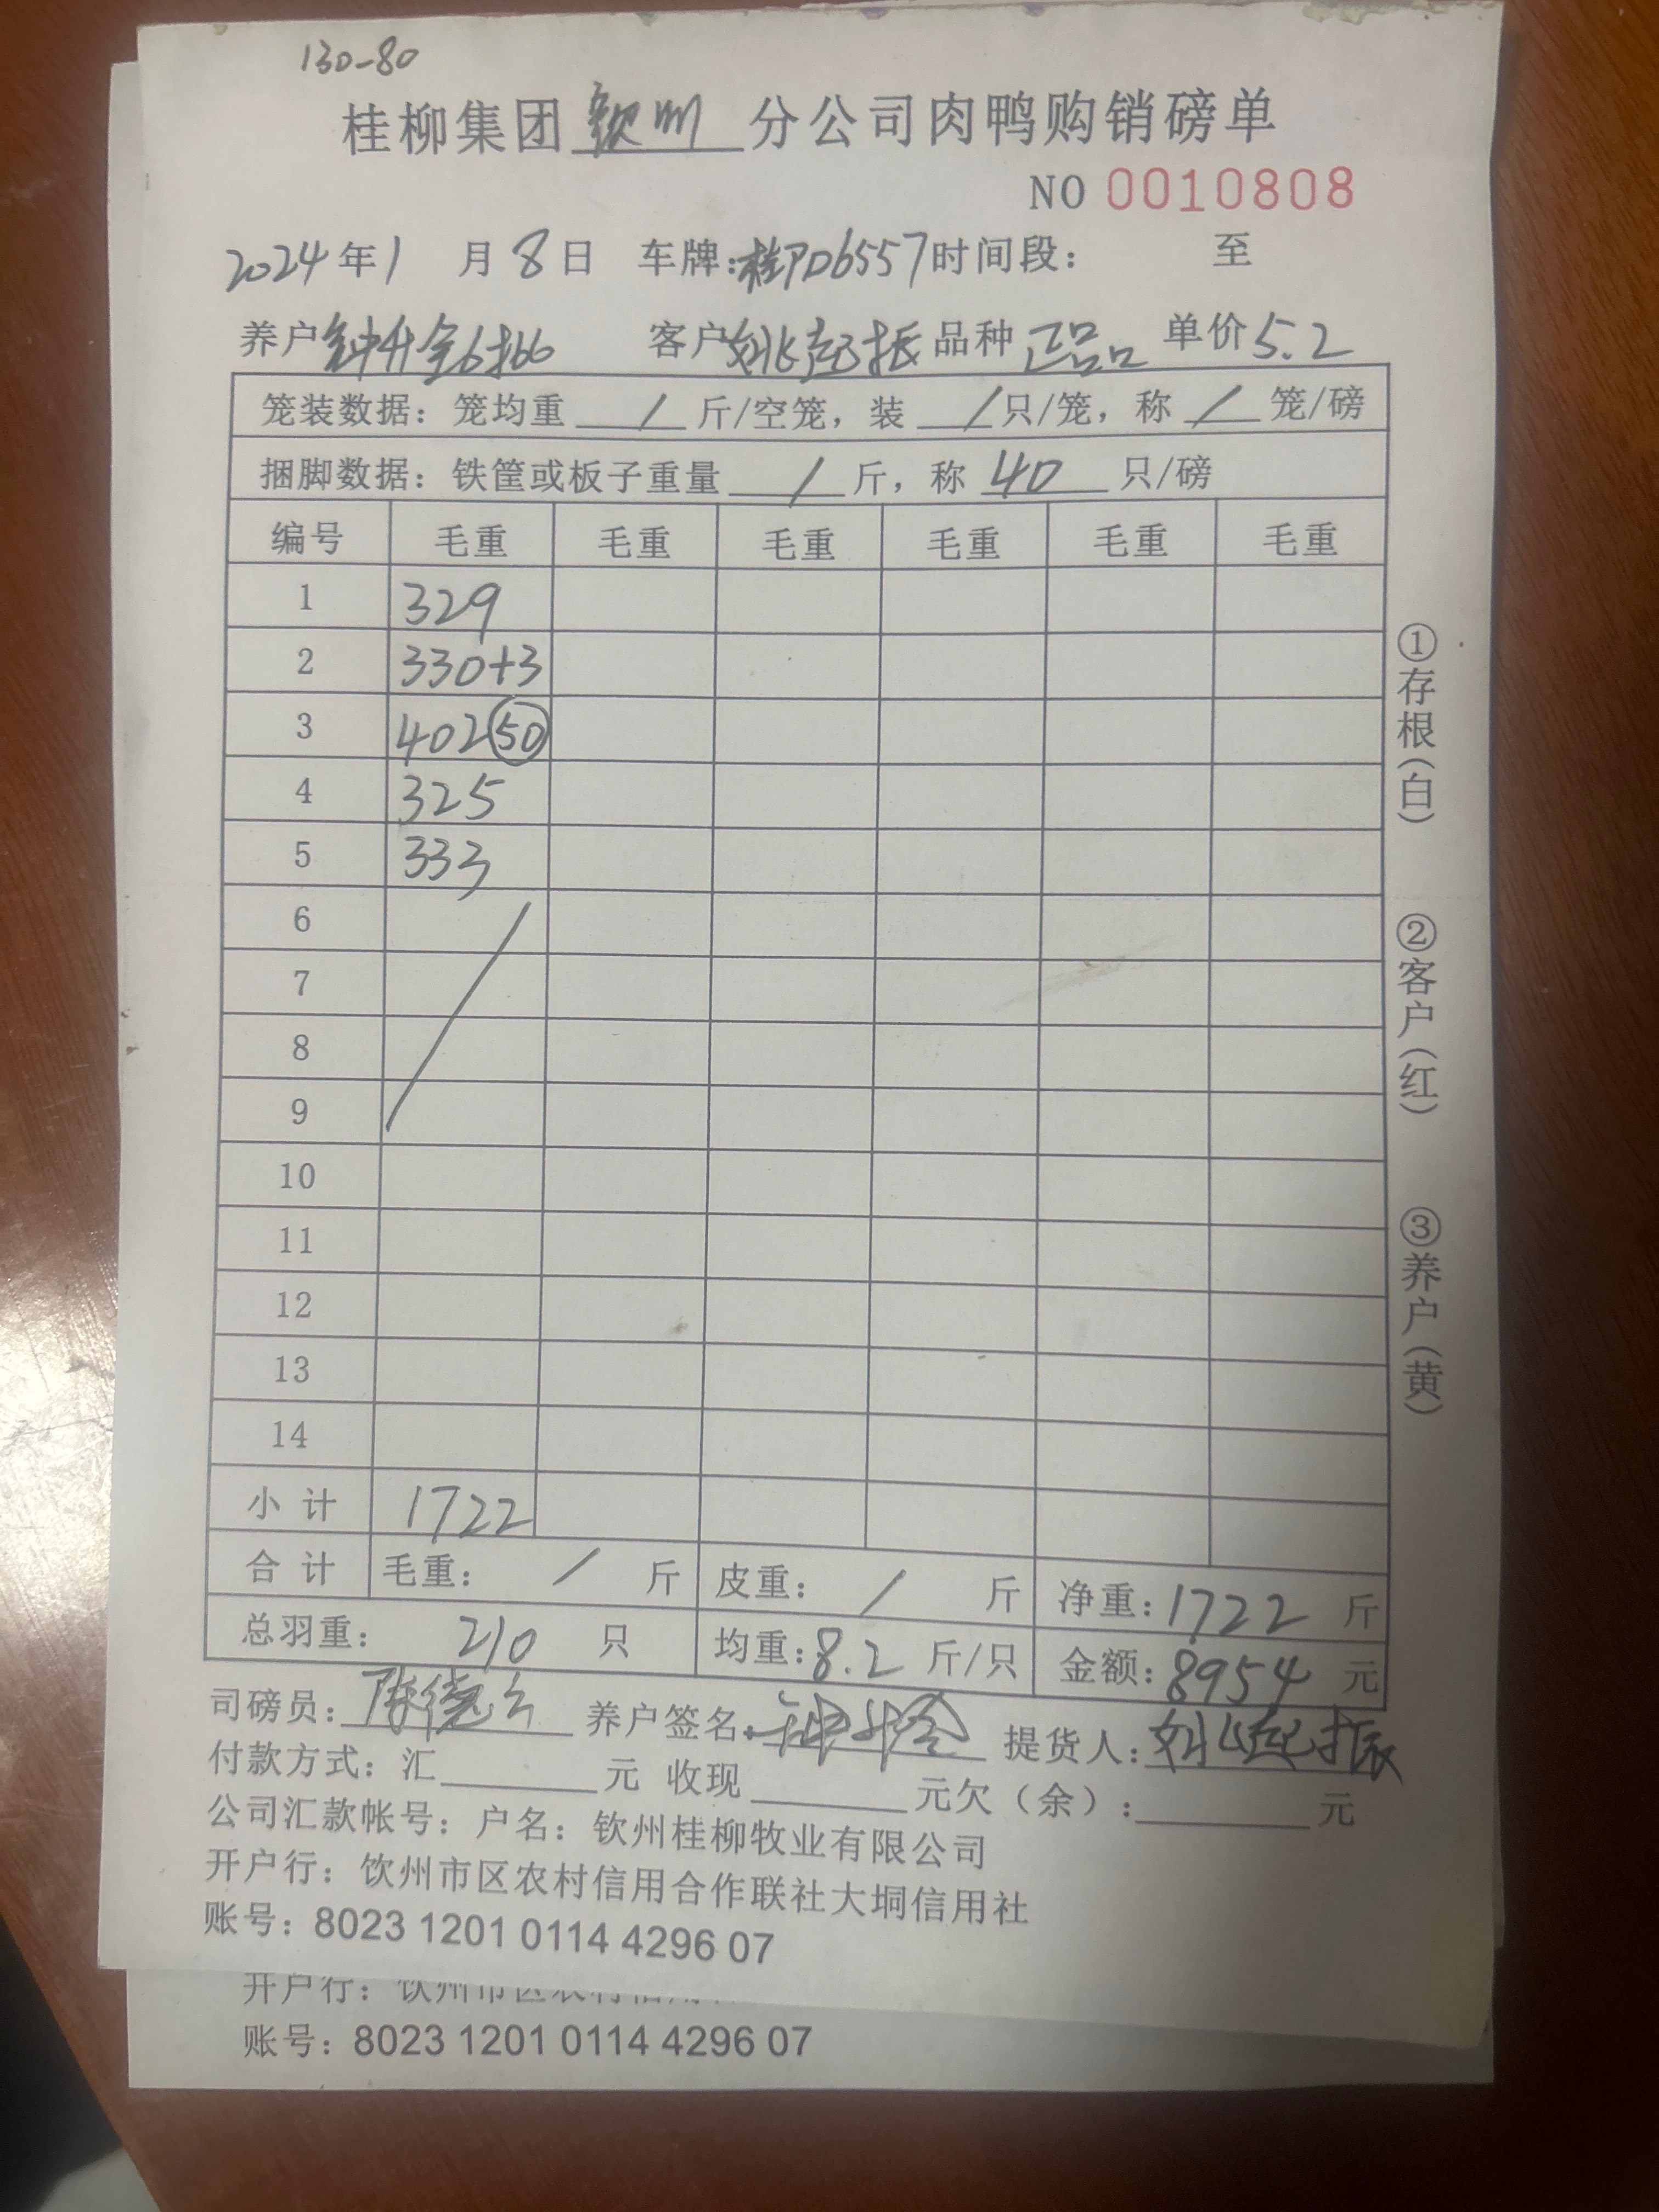 130-80
桂柳集团钦州分公司肉鸭购销磅单
NO 0010808
2024年1月8日 车牌:桂PD6557时间段: 至
养户钟升全6批 客户姚起振品种正品单价5.2
笼装数据: 笼均重 / 斤/空笼, 装 / 只/笼, 称 / 笼/磅
捆脚数据: 铁筐或板子重量 / 斤, 称 40 只/磅
编号 毛重 毛重 毛重 毛重 毛重 毛重
1 329
2 330+3
3 402 50
4 325
5 333
6
7
8
9
10
11
12
13
14
小计 1722
合计 毛重: / 斤 皮重: / 斤 净重:1722 斤
总羽重: 210 只 均重:8.2 斤/只 金额:8954 元
司磅员: 陈德 养户签名: 钟升全 提货人: 姚起振
付款方式: 汇 元 收现 元欠(余): 元
公司汇款帐号: 户名: 钦州桂柳牧业有限公司
开户行: 饮州市区农村信用合作联社大垌信用社
账号: 8023 1201 0114 4296 07
①存根(白)
②客户(红)
③养户(黄)
开户行: 饮州市区农村信用
账号: 8023 1201 0114 4296 07